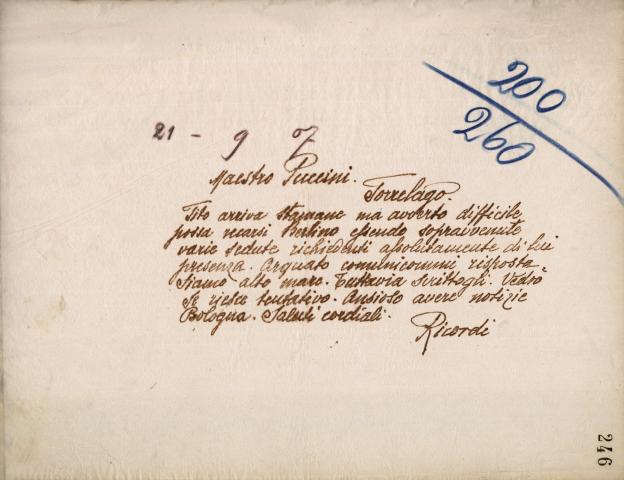 200
260
21 - 9 7
Maestro Puccini.
Torrelago.
Tito arriva stamane ma avverto difficile
possa recarsi Berlino essendo sopravvenute
varie sedute richiedenti assolutamente di lui
presenza. Arquato comunicommi risposta
siamo alto mare. Tuttavia scrittogli. Vedrò
se riesce tentativo. Ansioso avere notizie
Bologna. Saluti cordiali.
Ricordi
246